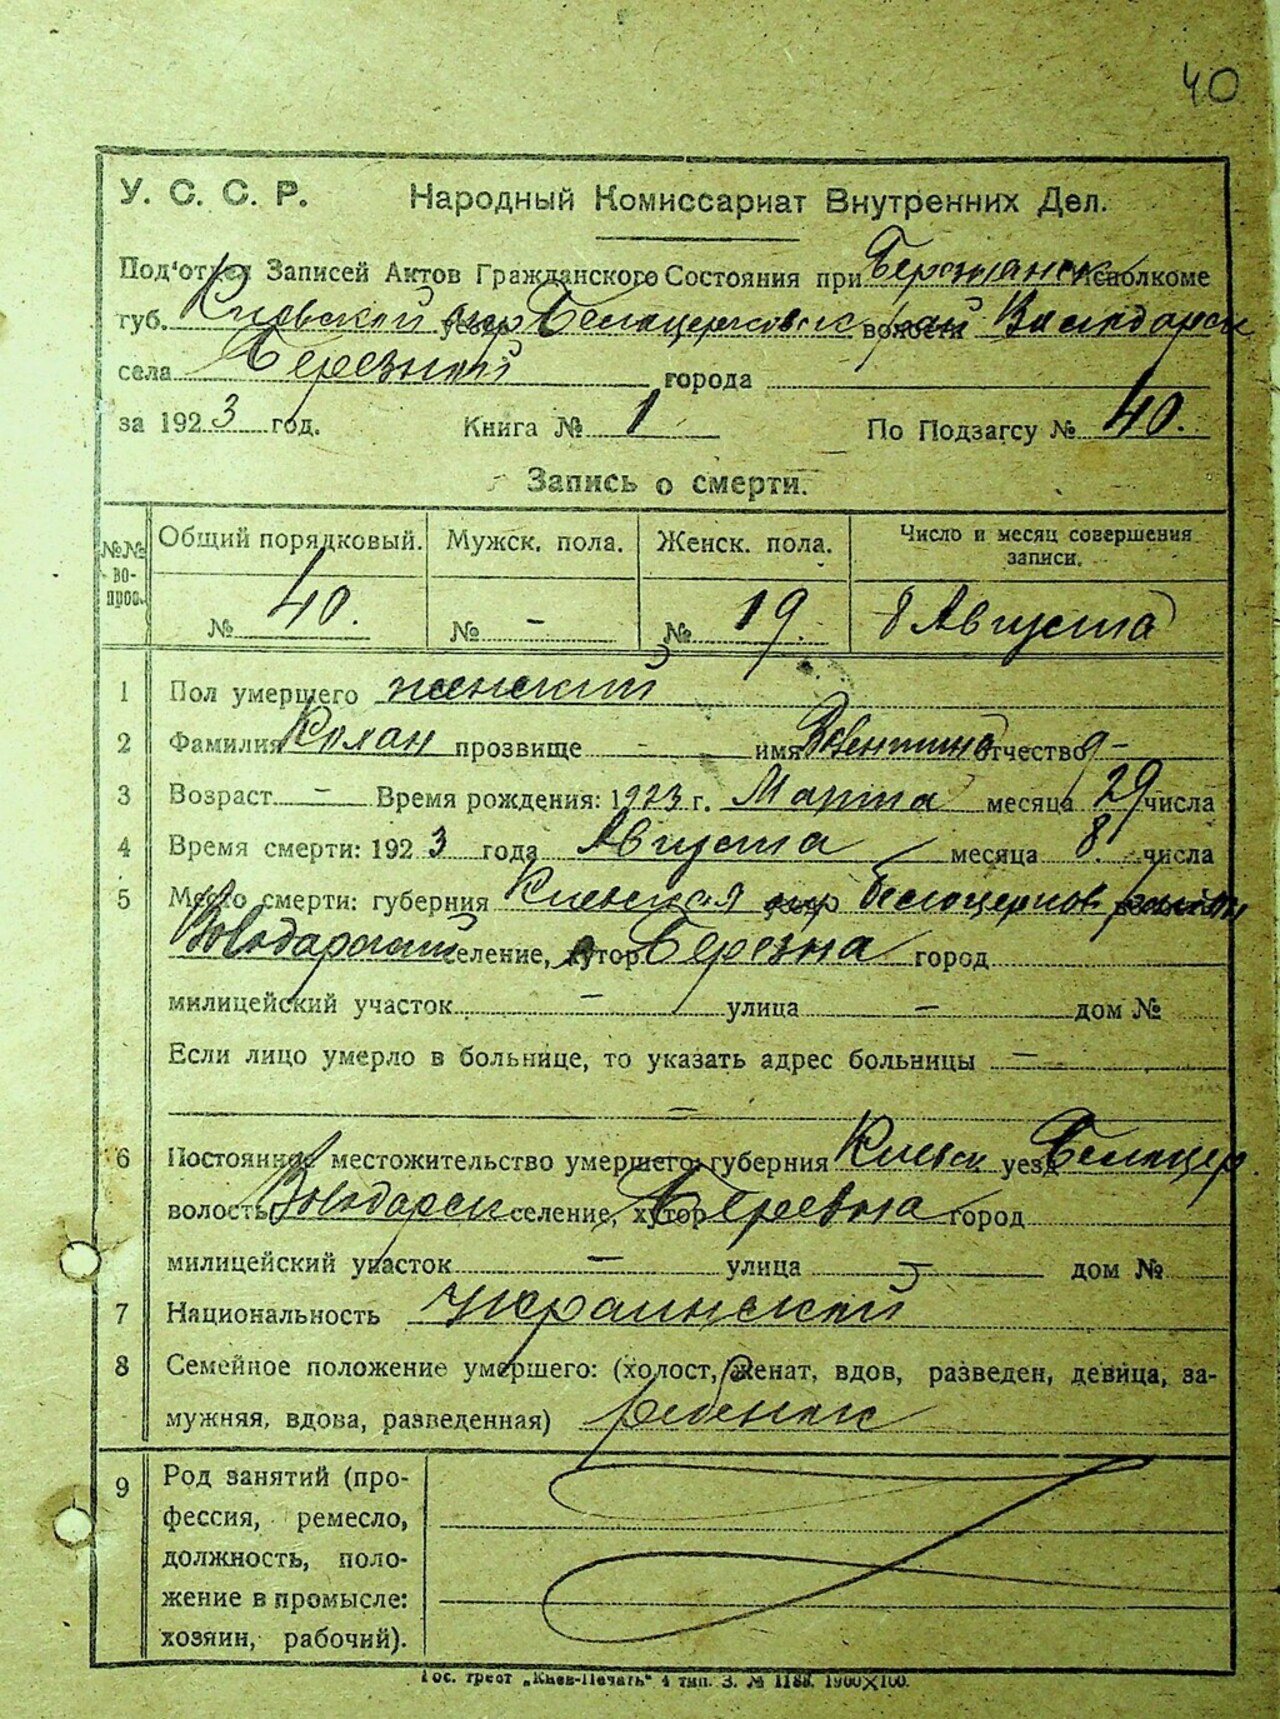 40
У. С. С. Р. Народный Комиссариат Внутренних Дел.
Под'отдел Записей Актов Гражданского Состояния при Исполкоме
губ. Киевской окр Белоцерковск волости рай Володарск
села Березной города
за 1923 год. Книга № 1 По Подзагсу № 40.
Запись о смерти.
№№ вопрос. Общий порядковый. Мужск. пола. Женск. пола. Число и месяц совершения записи.
№ 40. № - № 19. 8 Августа
1 Пол умершего женский
2 Фамилия Колан прозвище - имя отчество -
3 Возраст - Время рождения: 1923 г. Марта месяца 29 числа
4 Время смерти: 1923 года Августа месяца 8. числа
5 Место смерти: губерния Киевская окр Белоцерков район
Володарский селение, хутор Березна город
милицейский участок - улица - дом №
Если лицо умерло в больнице, то указать адрес больницы -
-
6 Постоянное местожительство умершего: губерния Киевск уезд Белоцер
волость Володарск селение, хутор Березна город
милицейский участок - улица - дом №
7 Национальность Украинский
8 Семейное положение умершего: (холост, женат, вдов, разведен, девица, за-
мужняя, вдова, разведенная) ребенок
9 Род занятий (про-
фессия, ремесло,
должность, поло-
жение в промысле:
хозяин, рабочий).
Гос. трест „Киев-Печать" 4 тип. З. № 1188. 1900×100.